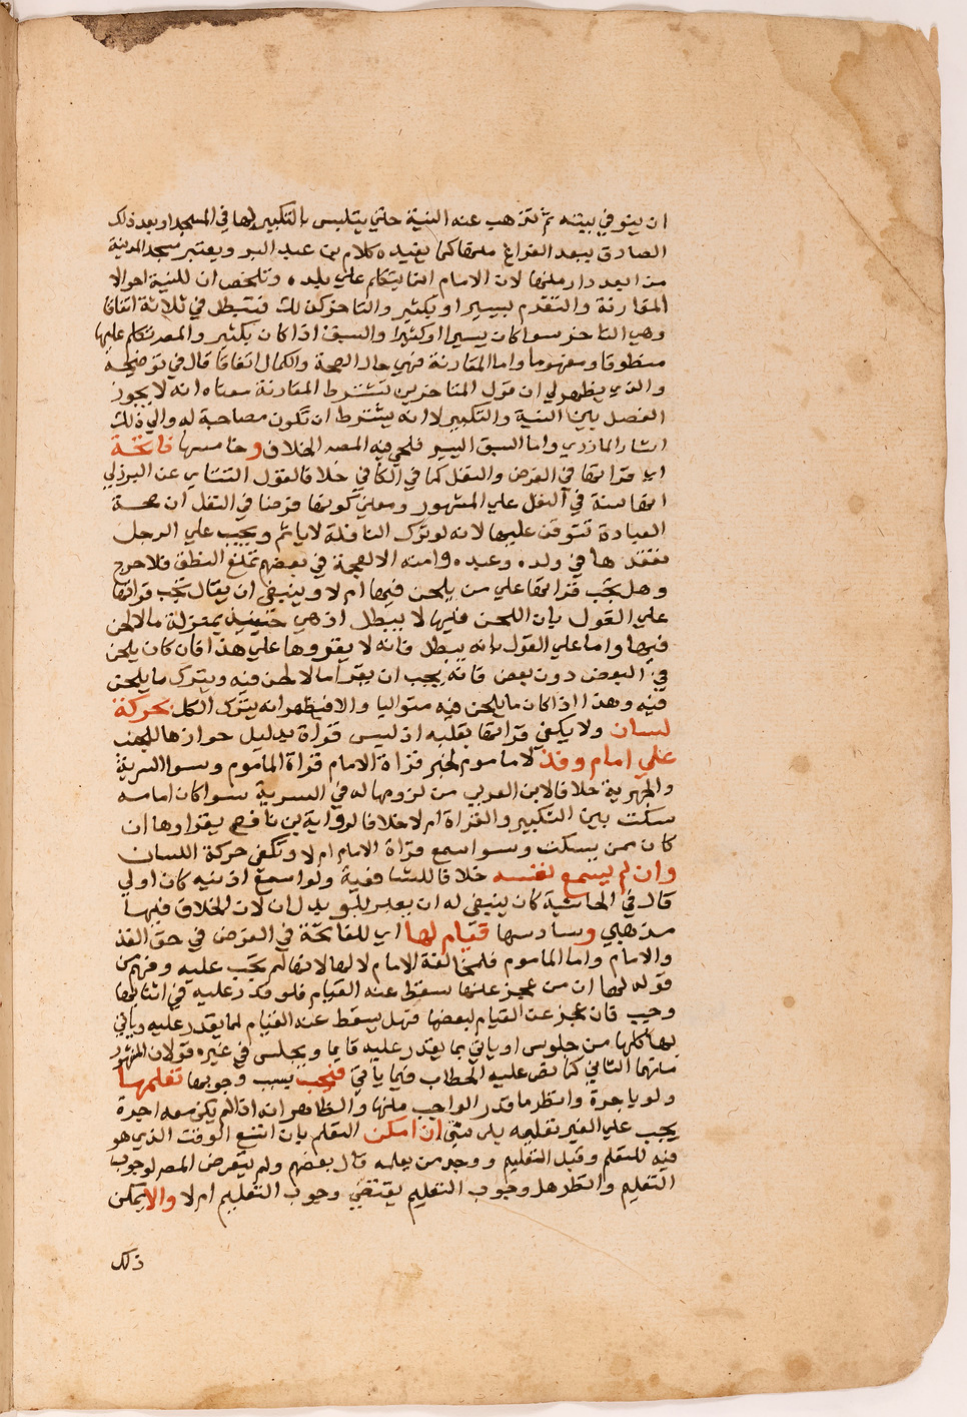 ان ينوي في بيته ثم تذهب عنه النية حتي يتلبس بالتكبير لها في المسجد او بعد ذلك
الصادق ببعد الفراغ منها كما يفيده كلام بن عبد البر ويعتبر مسجد المدينة
من ابعد دار منها لان الامام انما يتكلم علي بلده وتلخص ان للنية احوالا
المقارنة والتقدم بيسير او بكثير والتاخر كذلك فتبطل في ثلاثة اتفاقا
وهي التاخر سوا كان يسيرا او كثيرا والسبق اذا كان بكثير والمصر تكلم عليها
منطوقا ومفهوما واما المقارنة فهي حال الصحة والكمال اتفاقا قال في توضيحه
والذي يظهر لي ان قول المتاخرين تشترط المقارنة معناه انه لا يجوز
الفصل بين النية والتكبير لا انه يشترط ان تكون مصاحبة له والي ذلك
اشار المازري واما السبق اليسير فحكي فيه المصر الخلاف وخامسها فاتحة
اي قراتها في الفرض والنفل كما في الكافي خلافا لقول التتاي عن البرزلي
انها سنة في النفل علي المشهور ومعني كونها فرضا في النفل ان صحة
العبادة تتوقف عليها لا انه لو ترك النافلة لا ياثم ويجب علي الرجل
تفقدها في ولده وعبده وامته الا لعجمة في بعضهم تمنع النطق فلا حرج
وهل تجب قراتها علي من يلحن فيها ام لا وينبغي ان يقال تجب قراتها
علي القول بان اللحن فيها لا يبطل اذ هي حينيذ بمنزلة ما لا لحن
فيها واما علي القول بانه يبطل فانه لا يقروها علي هذا فان كان يلحن
في البعض دون بعض فانه يجب ان يقرا ما لا لحن فيه ويترك ما يلحن
فيه وهذا اذا كان ما يلحن فيه متواليا والا فيظهر انه يترك الكل بحركة
لسان ولا يكفي قراتها بقلبه اذ ليس قراة بدليل جوازها للجنب
علي امام وفذ لا ماموم لخبر قراة الامام قراة الماموم وسوا السرية
والجهرية خلافا لابن العربي من لزومها له في السرية سوا كان امامه
سكت بين التكبير والقراة ام لا خلافا لرواية بن نافع يقراوها ان
كان ممن يسكت وسوا سمع قراة الامام ام لا وتكفي حركة اللسان
وان لم يسمع نفسه خلافا للشافعية ولو اسمع اذنيه كان اولي
قال في الحاشية كان ينبغي له ان يعبر بلو بدل ان لان الخلاف فيها
مذهبي وسادسها قيام لها اي للفاتحة في الفرض في حق الفذ
والامام واما الماموم فلمخالفة الامام لا لها لانها لم تجب عليه وفهم من
قوله لها ان من عجز عنها سقط عنه القيام فلو قدر عليه في اثنايها
وجب فان عجز عن القيام لبعضها فهل يسقط عنه القيام لما يقدر عليه وياتي
بها كلها من جلوس او ياتي بما يقدر عليه قايما ويجلس في غيره قولان المشهور
منهما الثاني كما نص عليه الحطاب فيما ياتي فيجب بسبب وجوبها تعلمها
ولو باجرة وانظر ما قدر الواجب منها والظاهر انه اذا لم يكن معه اجرة
يجب علي الغير تعليمه بلا شي ان امكن التعلم بان اتسع الوقت الذي هو
فيه للتعلم وقبل التعليم ووجد من يعلمه قال بعضهم ولم يتعرض المصر لوجوب
التعليم وانظر هل وجوب التعليم يقتضي وجوب التعليم ام لا والا يمكن
ذلك